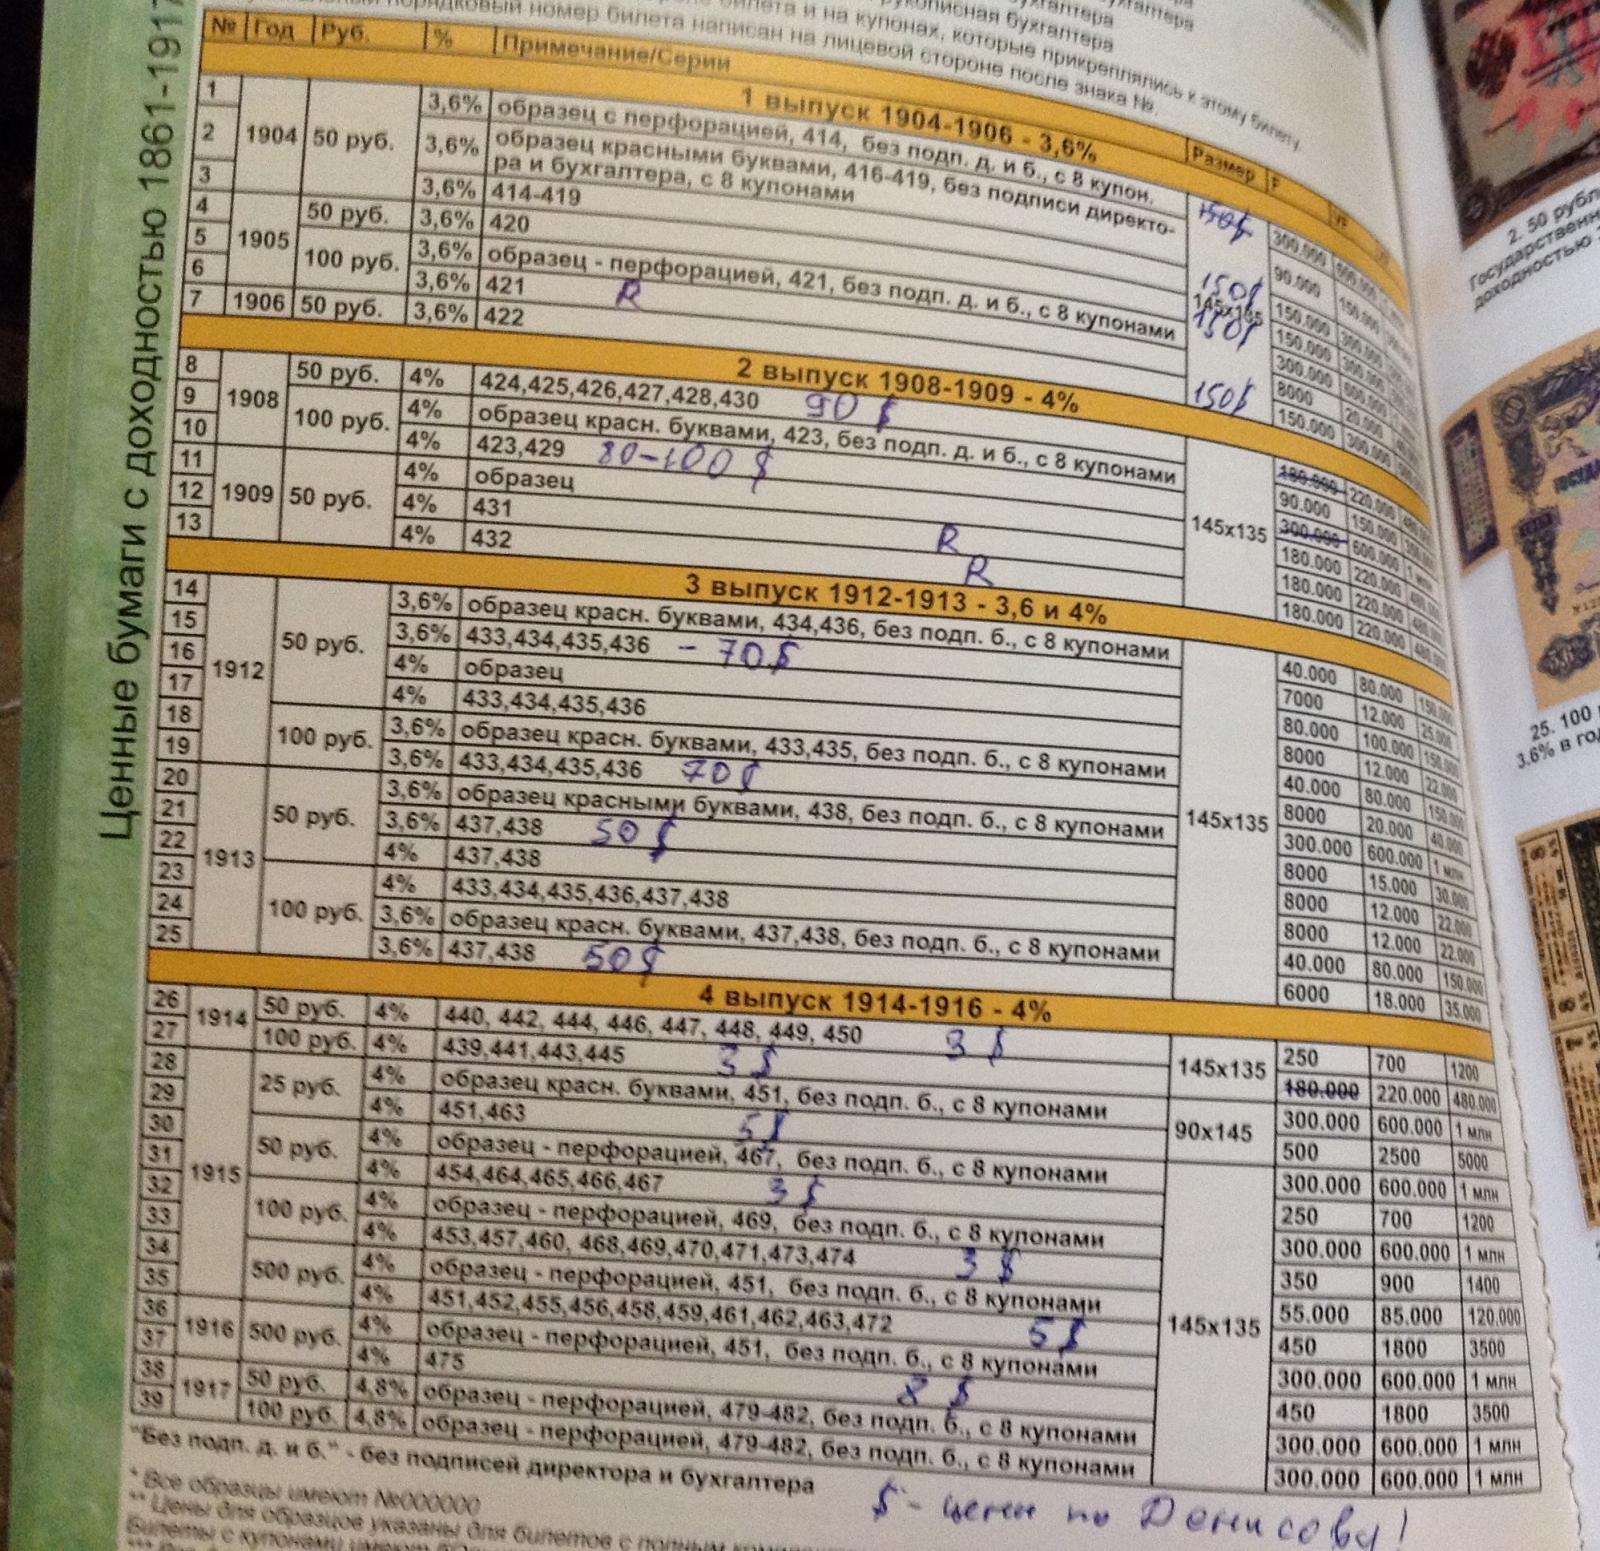 Ценные бумаги с доходностью 1861-1917
порядковый номер билета написан на лицевой стороне после знака №.
билета и на купонах, которые прикреплялись к этому билету.
№ Год Руб. % Примечание/Серии Размер F VF
1 выпуск 1904-1906 - 3,6%
1 1904 50 руб. 3,6% образец с перфорацией, 414, без подп. д. и б., с 8 купон. 300.000 600.000
2 3,6% образец красными буквами, 416-419, без подписи директо-
ра и бухгалтера, с 8 купонами 90.000 150.000
3 3,6% 414-419 150$ 150.000 300.000
4 1905 50 руб. 3,6% 420 150$ 150.000 300.000
5 100 руб. 3,6% образец - перфорацией, 421, без подп. д. и б., с 8 купонами 145x135 300.000 600.000
6 3,6% 421 R 150$ 8000 20.000
7 1906 50 руб. 3,6% 422 150$ 150.000 300.000
2 выпуск 1908-1909 - 4%
8 1908 50 руб. 4% 424,425,426,427,428,430 90$ 145x135 180.000 220.000 480.000
9 100 руб. 4% образец красн. буквами, 423, без подп. д. и б., с 8 купонами 90.000 150.000
10 4% 423,429 80-100$ 300.000 600.000 1 млн
11 1909 50 руб. 4% образец 180.000 220.000 480.000
12 4% 431 R 180.000 220.000 480.000
13 4% 432 R 180.000 220.000 480.000
3 выпуск 1912-1913 - 3,6 и 4%
14 1912 50 руб. 3,6% образец красн. буквами, 434,436, без подп. б., с 8 купонами 145x135 40.000 80.000 150.000
15 3,6% 433,434,435,436 - 70$ 7000 12.000 25.000
16 4% образец 80.000 100.000 150.000
17 4% 433,434,435,436 8000 12.000 22.000
18 100 руб. 3,6% образец красн. буквами, 433,435, без подп. б., с 8 купонами 40.000 80.000 150.000
19 3,6% 433,434,435,436 70$ 8000 20.000 40.000
20 1913 50 руб. 3,6% образец красными буквами, 438, без подп. б., с 8 купонами 300.000 600.000 1 млн
21 3,6% 437,438 50$ 8000 15.000 30.000
22 4% 437,438 8000 12.000 22.000
23 100 руб. 4% 433,434,435,436,437,438 8000 12.000 22.000
24 3,6% образец красн. буквами, 437,438, без подп. б., с 8 купонами 40.000 80.000 150.000
25 3,6% 437,438 50$ 6000 18.000 35.000
4 выпуск 1914-1916 - 4%
26 1914 50 руб. 4% 440, 442, 444, 446, 447, 448, 449, 450 3$ 145x135 250 700 1200
27 100 руб. 4% 439,441,443,445 3$ 180.000 220.000 480.000
28 1915 25 руб. 4% образец красн. буквами, 451, без подп. б., с 8 купонами 90x145 300.000 600.000 1 млн
29 4% 451,463 5$ 500 2500 5000
30 50 руб. 4% образец - перфорацией, 467, без подп. б., с 8 купонами 145x135 300.000 600.000 1 млн
31 4% 454,464,465,466,467 3$ 250 700 1200
32 100 руб. 4% образец - перфорацией, 469, без подп. б., с 8 купонами 300.000 600.000 1 млн
33 4% 453,457,460, 468,469,470,471,473,474 3$ 350 900 1400
34 500 руб. 4% образец - перфорацией, 451, без подп. б., с 8 купонами 55.000 85.000 120.000
35 4% 451,452,455,456,458,459,461,462,463,472 5$ 450 1800 3500
36 1916 500 руб. 4% образец - перфорацией, 451, без подп. б., с 8 купонами 300.000 600.000 1 млн
37 4% 475 8$ 450 1800 3500
38 1917 50 руб. 4,8% образец - перфорацией, 479-482, без подп. б., с 8 купонами 300.000 600.000 1 млн
39 100 руб. 4,8% образец - перфорацией, 479-482, без подп. б., с 8 купонами 300.000 600.000 1 млн
"Без подп. д. и б." - без подписей директора и бухгалтера
* Все образцы имеют №000000
** Цены для образцов указаны для билетов с полным
Билеты с купонами имеют
$ - цены по Денисову!
2. 50 рубл
Государственн
доходностью
25. 100
3.6% в го